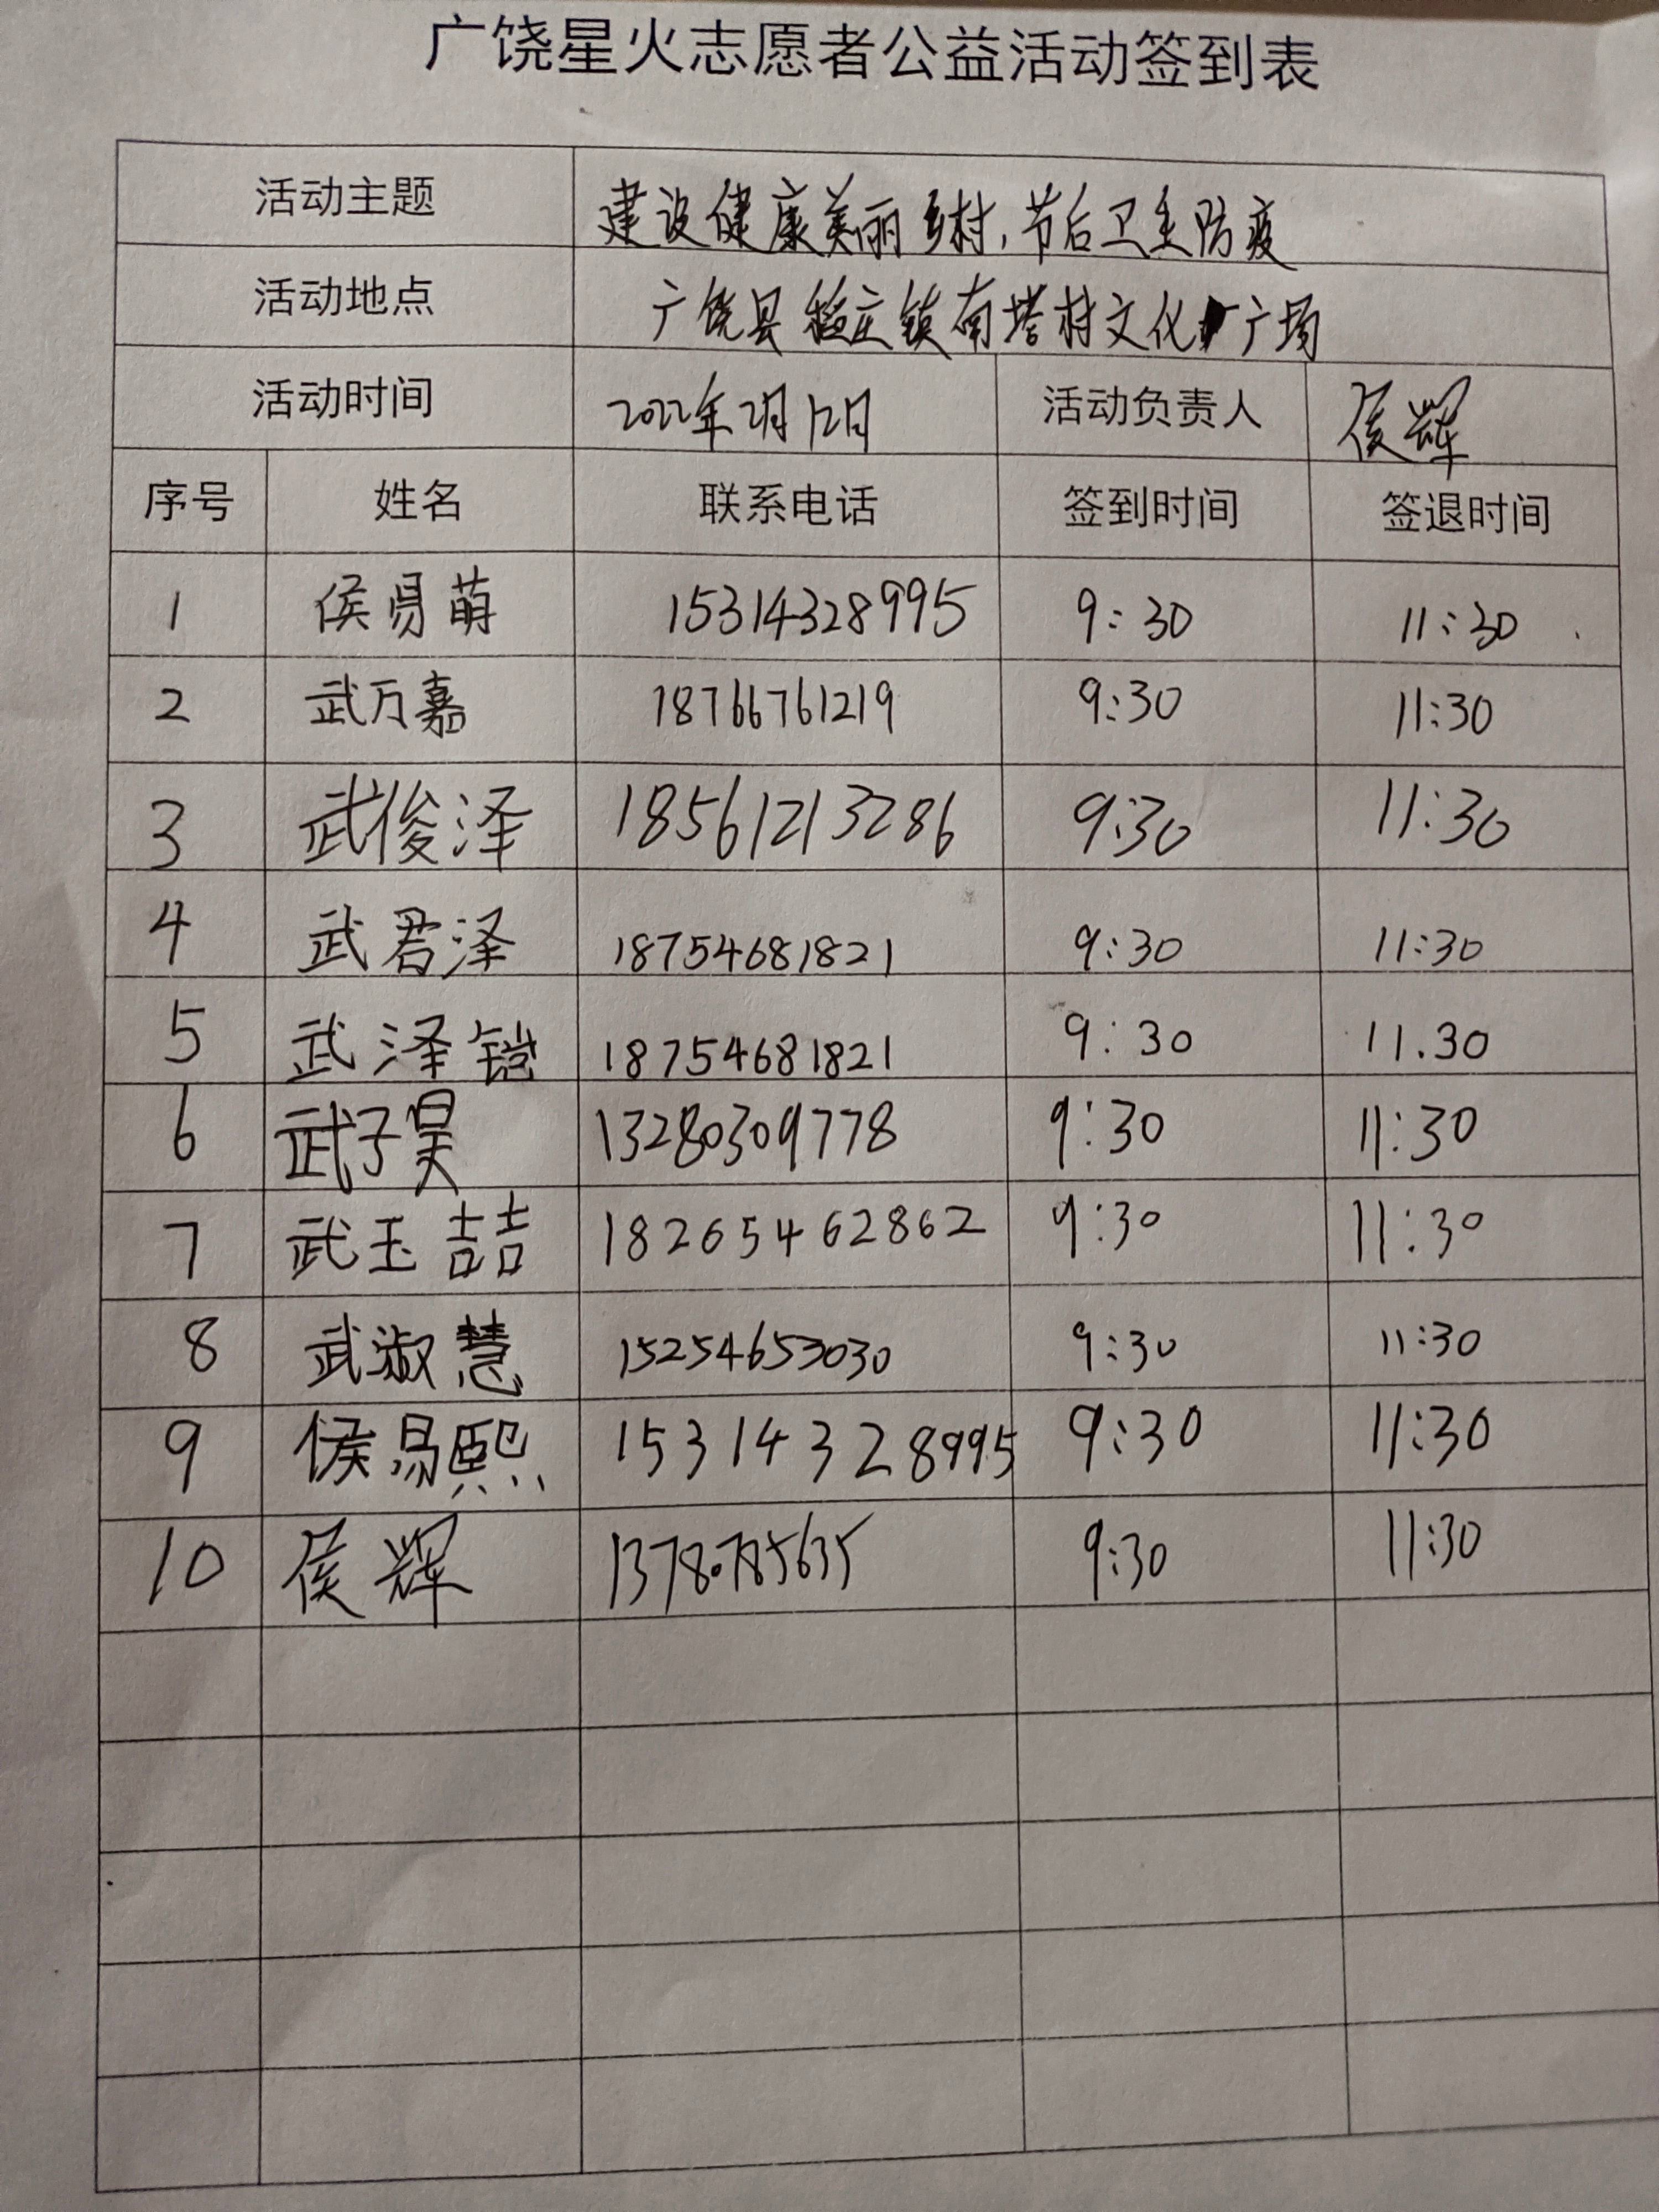 广饶星火志愿者公益活动签到表
活动主题 建设健康美丽乡村,节后卫生防疫
活动地点 广饶县稻庄镇南塔村文化广场
活动时间 2022年2月12日 活动负责人 侯辉
序号 姓名 联系电话 签到时间 签退时间
1 侯易萌 15314328995 9:30 11:30
2 武万嘉 18766761219 9:30 11:30
3 武俊泽 18561213286 9:30 11:30
4 武君泽 18754681821 9:30 11:30
5 武泽铠 18754681821 9:30 11.30
6 武子昊 13280309778 9:30 11:30
7 武玉喆 18265462862 9:30 11:30
8 武淑慧 15254653030 9:30 11:30
9 侯易熙 15314328995 9:30 11:30
10 侯辉 13780785635 9:30 11:30